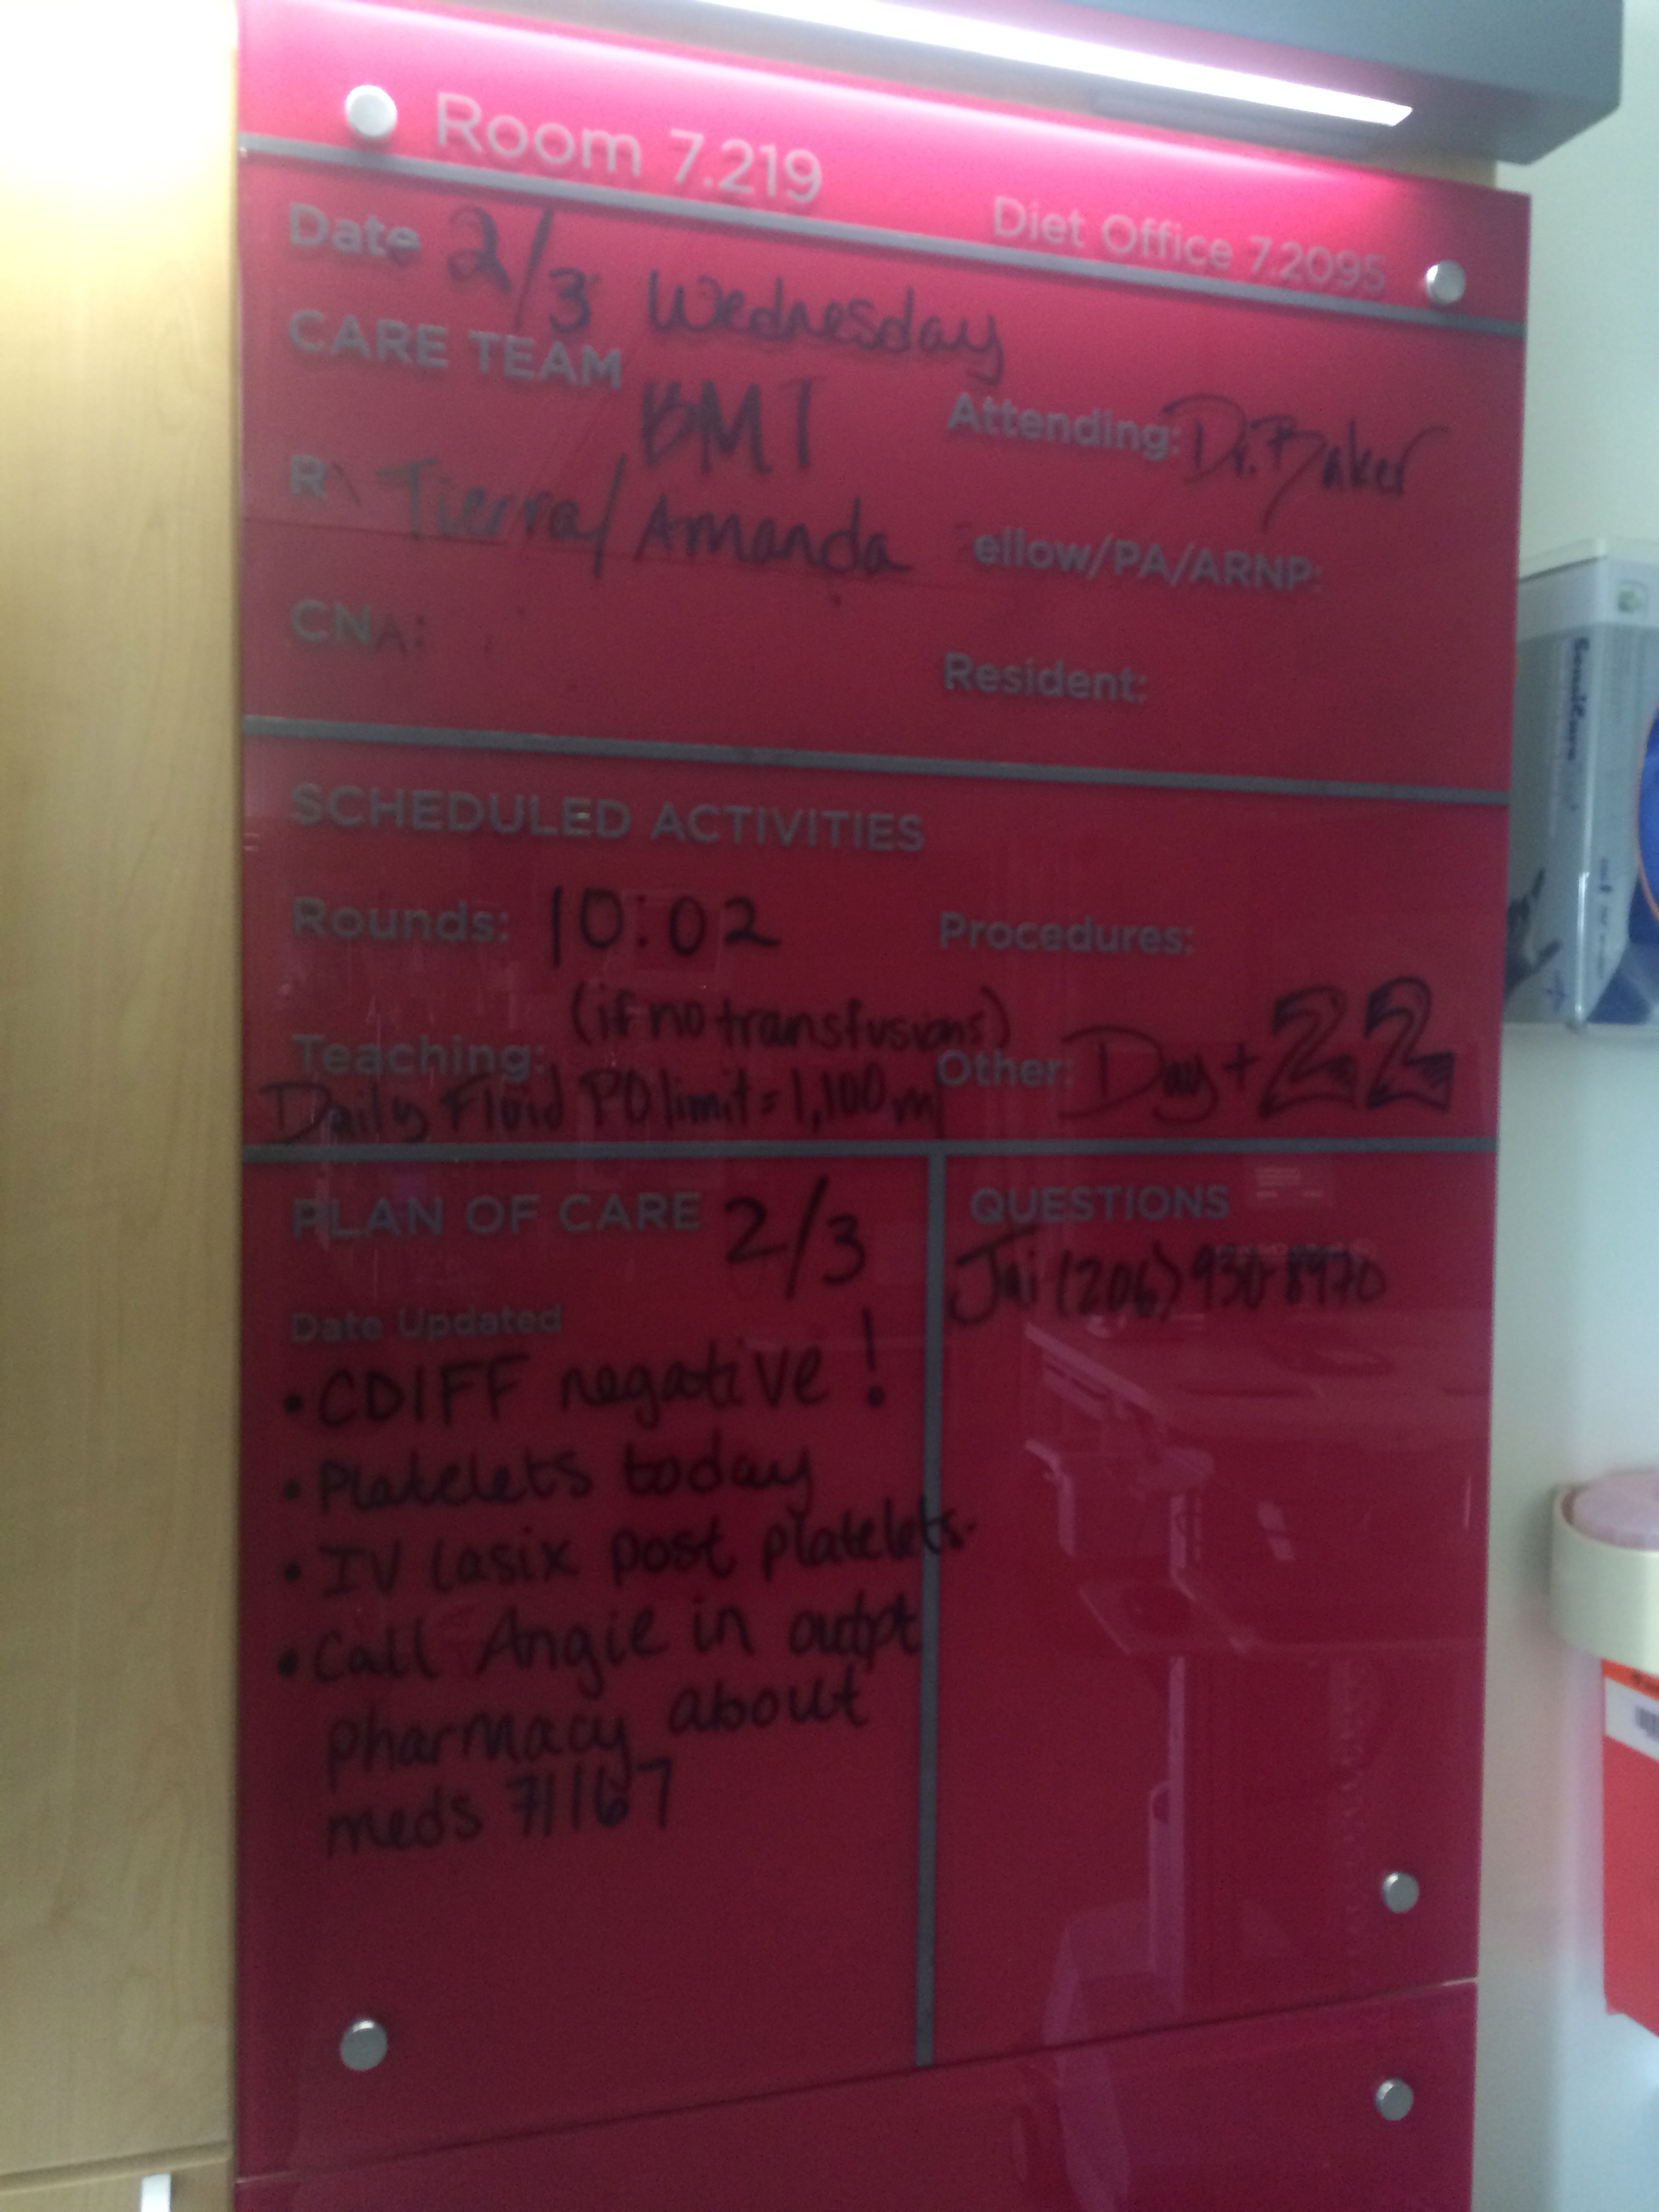 Room 7.219
Diet Office 7.2095
Date 2/3 Wednesday
CARE TEAM BMT
Attending: Dr. Baker
R Tierra/Amanda
ellow/PA/ARNP:
CNA:
Resident:
SCHEDULED ACTIVITIES
Rounds: 10:02
Procedures:
(if no transfusions)
Teaching:
Other: Day +22
Daily Fluid PO limit = 1,100 m
PLAN OF CARE 2/3
Date Updated
• CDIFF negative!
• Platelets today
• IV lasix post platelets.
• Call Angie in outpt
pharmacy about
meds 71167
QUESTIONS
Jai (206) 930-8970